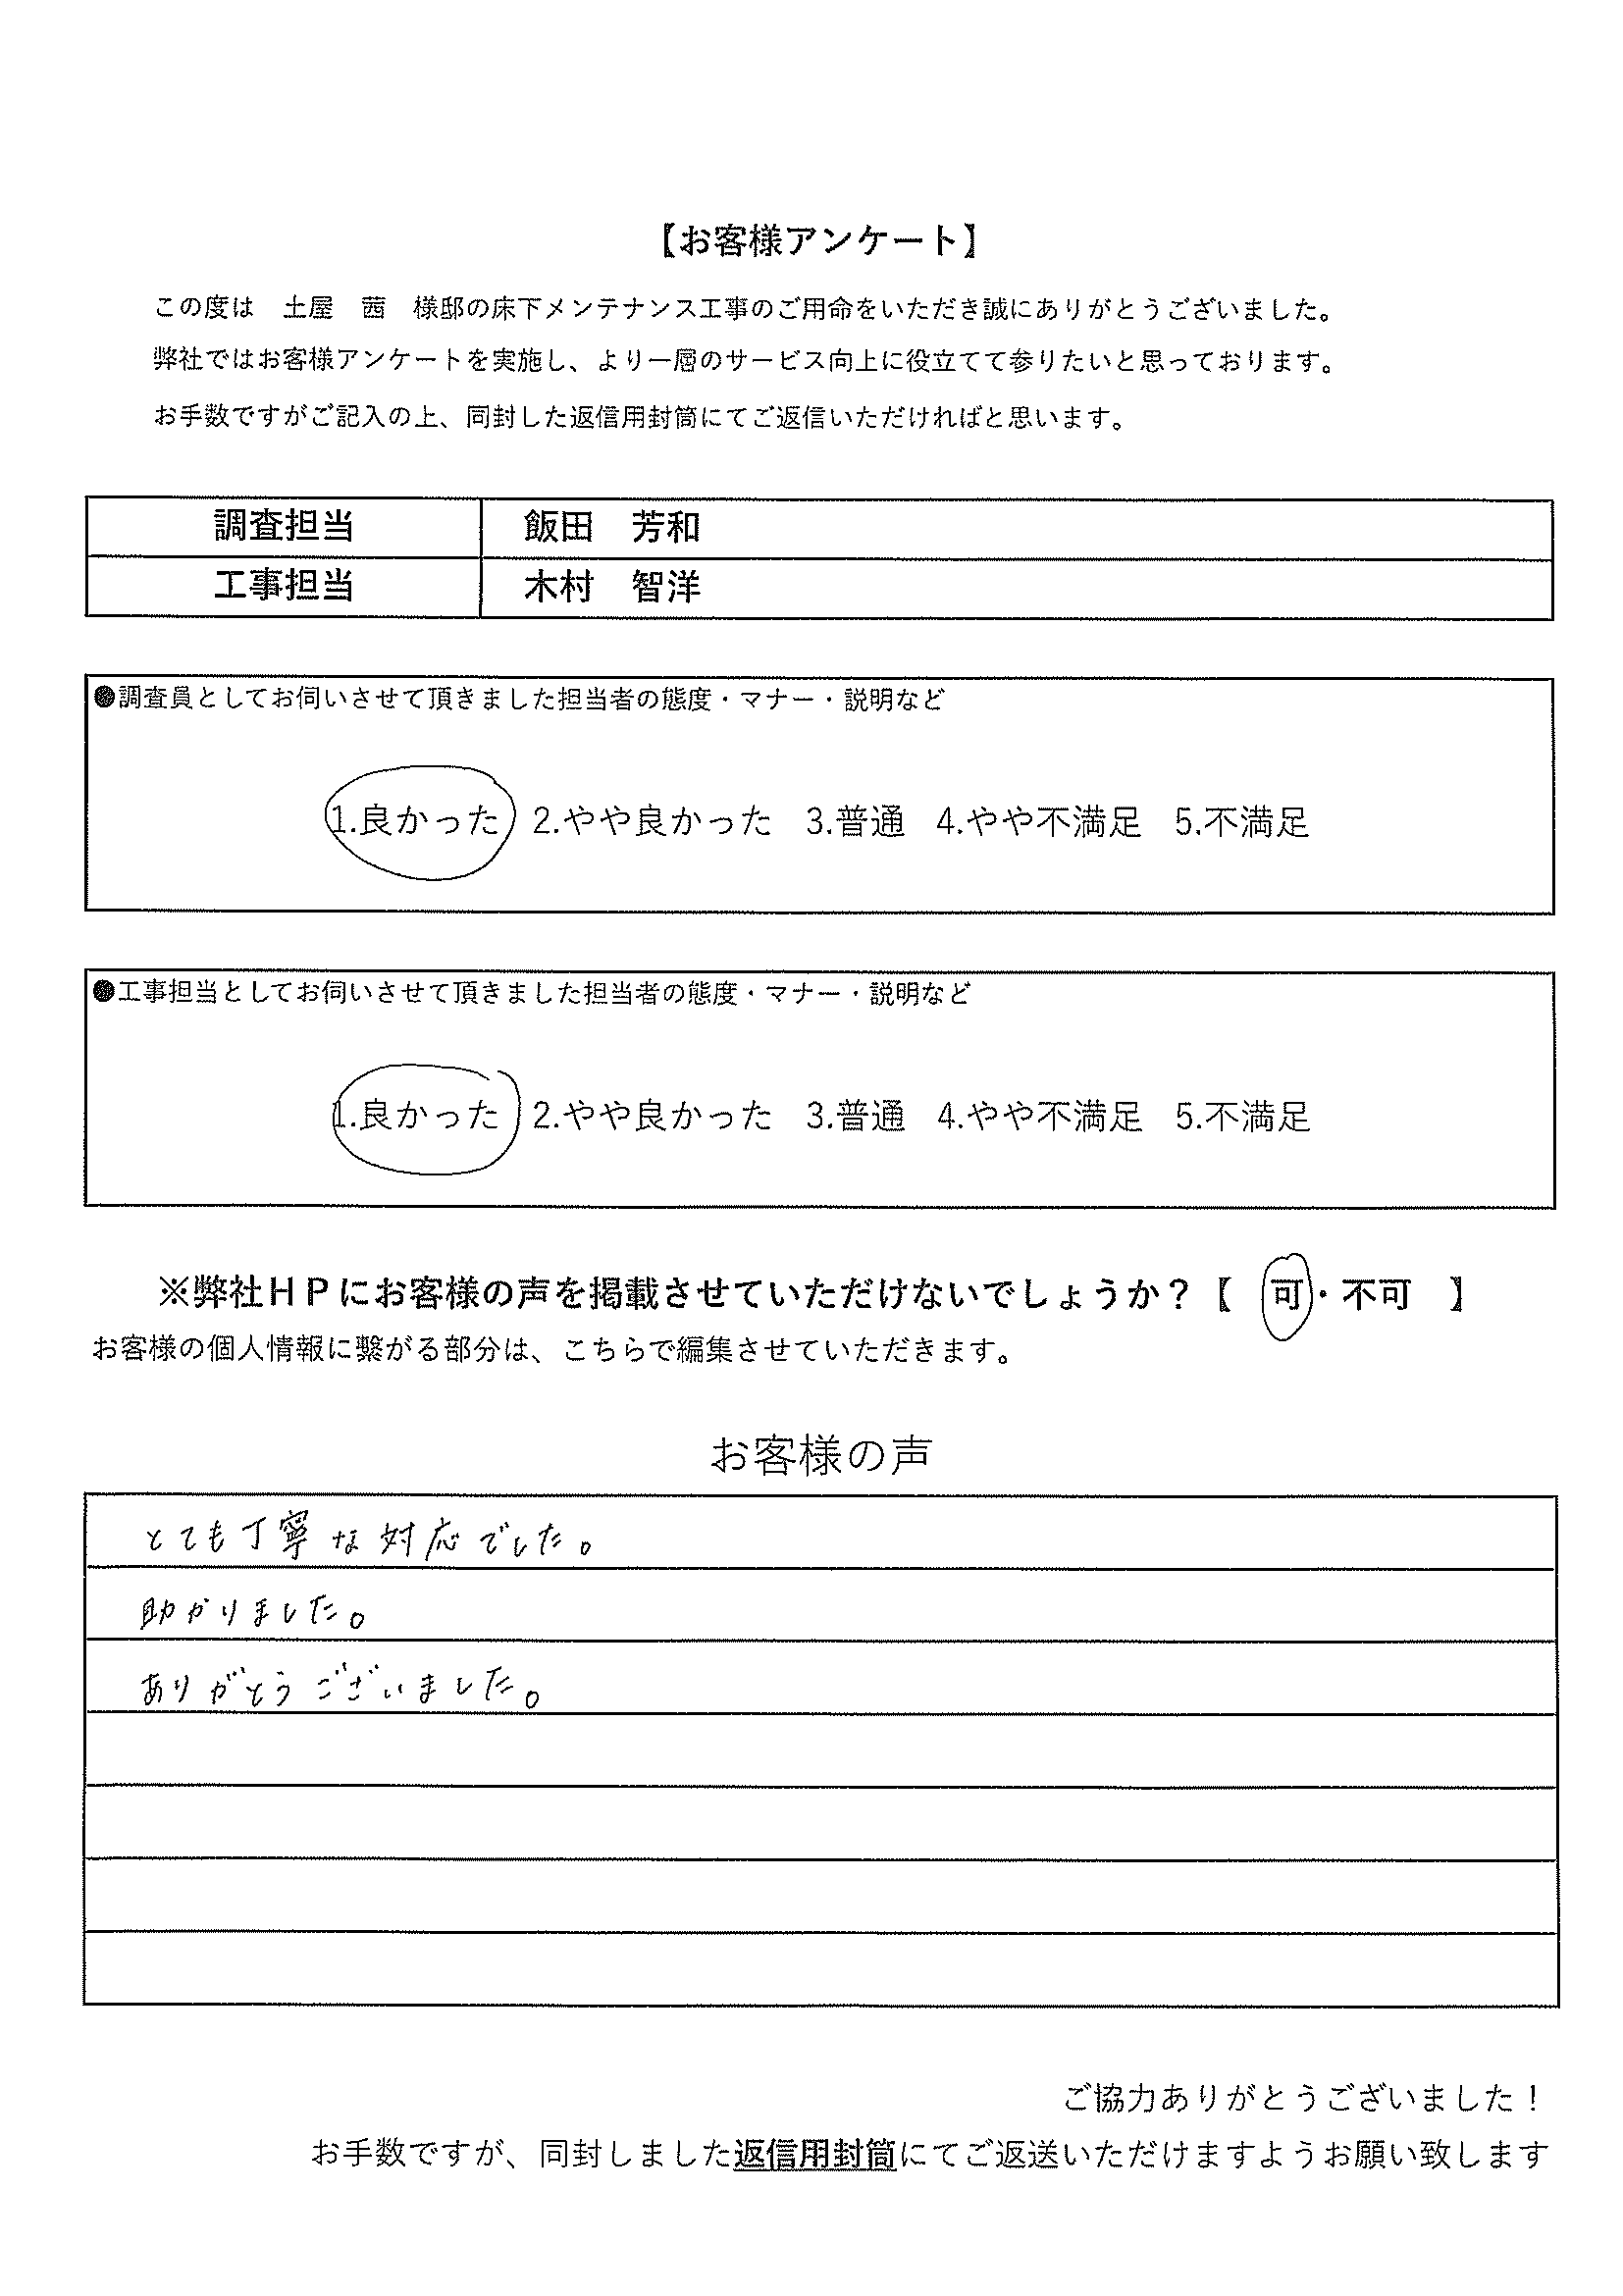 【お客様アンケート】
この度は　土屋　茜　様邸の床下メンテナンス工事のご用命をいただき誠にありがとうございました。
弊社ではお客様アンケートを実施し、より一層のサービス向上に役立てて参りたいと思っております。
お手数ですがご記入の上、同封した返信用封筒にてご返信いただければと思います。
調査担当　飯田　芳和
工事担当　木村　智洋
●調査員としてお伺いさせて頂きました担当者の態度・マナー・説明など
1.良かった 2.やや良かった 3.普通 4.やや不満足 5.不満足
●工事担当としてお伺いさせて頂きました担当者の態度・マナー・説明など
1.良かった 2.やや良かった 3.普通 4.やや不満足 5.不満足
※弊社ＨＰにお客様の声を掲載させていただけないでしょうか？【　可・不可　】
お客様の個人情報に繋がる部分は、こちらで編集させていただきます。
お客様の声
とても丁寧な対応でした。
助かりました。
ありがとうございました。
ご協力ありがとうございました！
お手数ですが、同封しました返信用封筒にてご返送いただけますようお願い致します